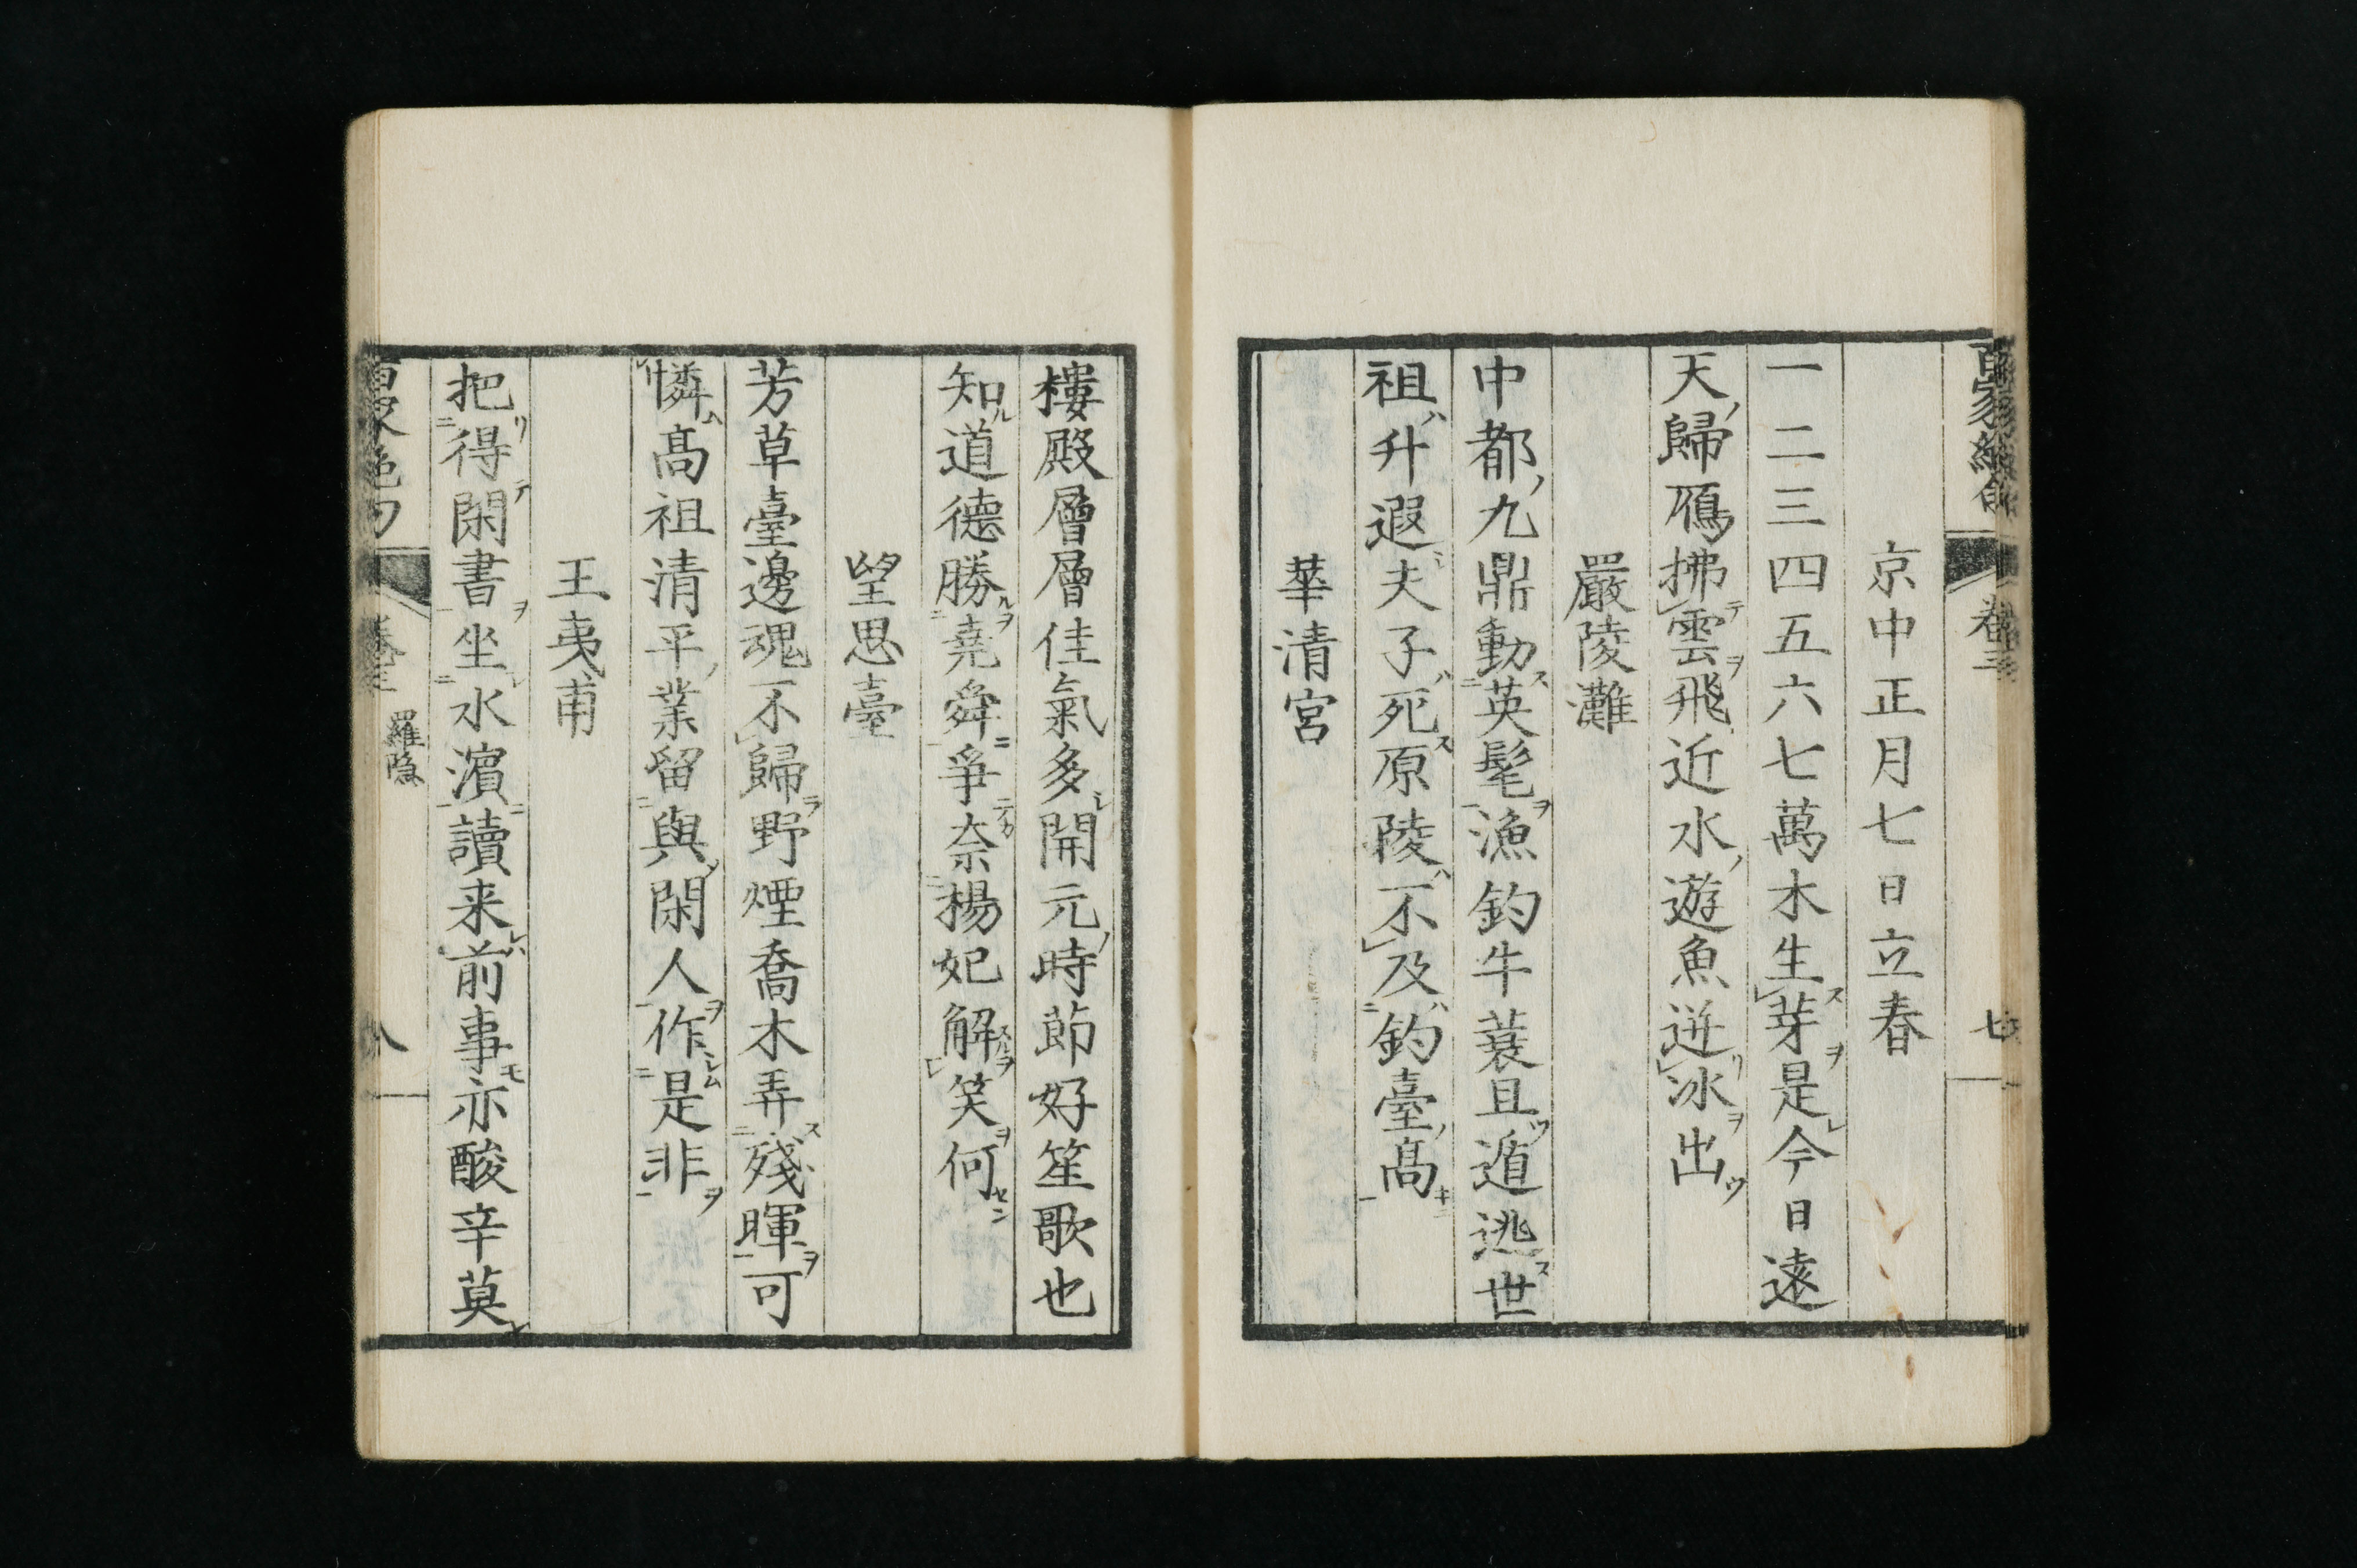 京中正月七日立春
一二三四五六七萬木生芽是今日遠
天歸鴈拂雲飛近水遊魚迸冰出
嚴陵灘
中都九鼎動英髦漁釣牛蓑且遁逃世
祖升遐夫子死原陵不及釣臺高
華清宮
樓殿層層佳氣多開元時節好笙歌也
知道德勝堯舜爭奈楊妃解笑何
望思臺
芳草臺邊魂不歸野煙喬木弄殘暉可
憐高祖清平業留與閑人作是非
王夷甫
把得閑書坐水濱讀来前事亦酸辛莫
卷三
羅隐
八